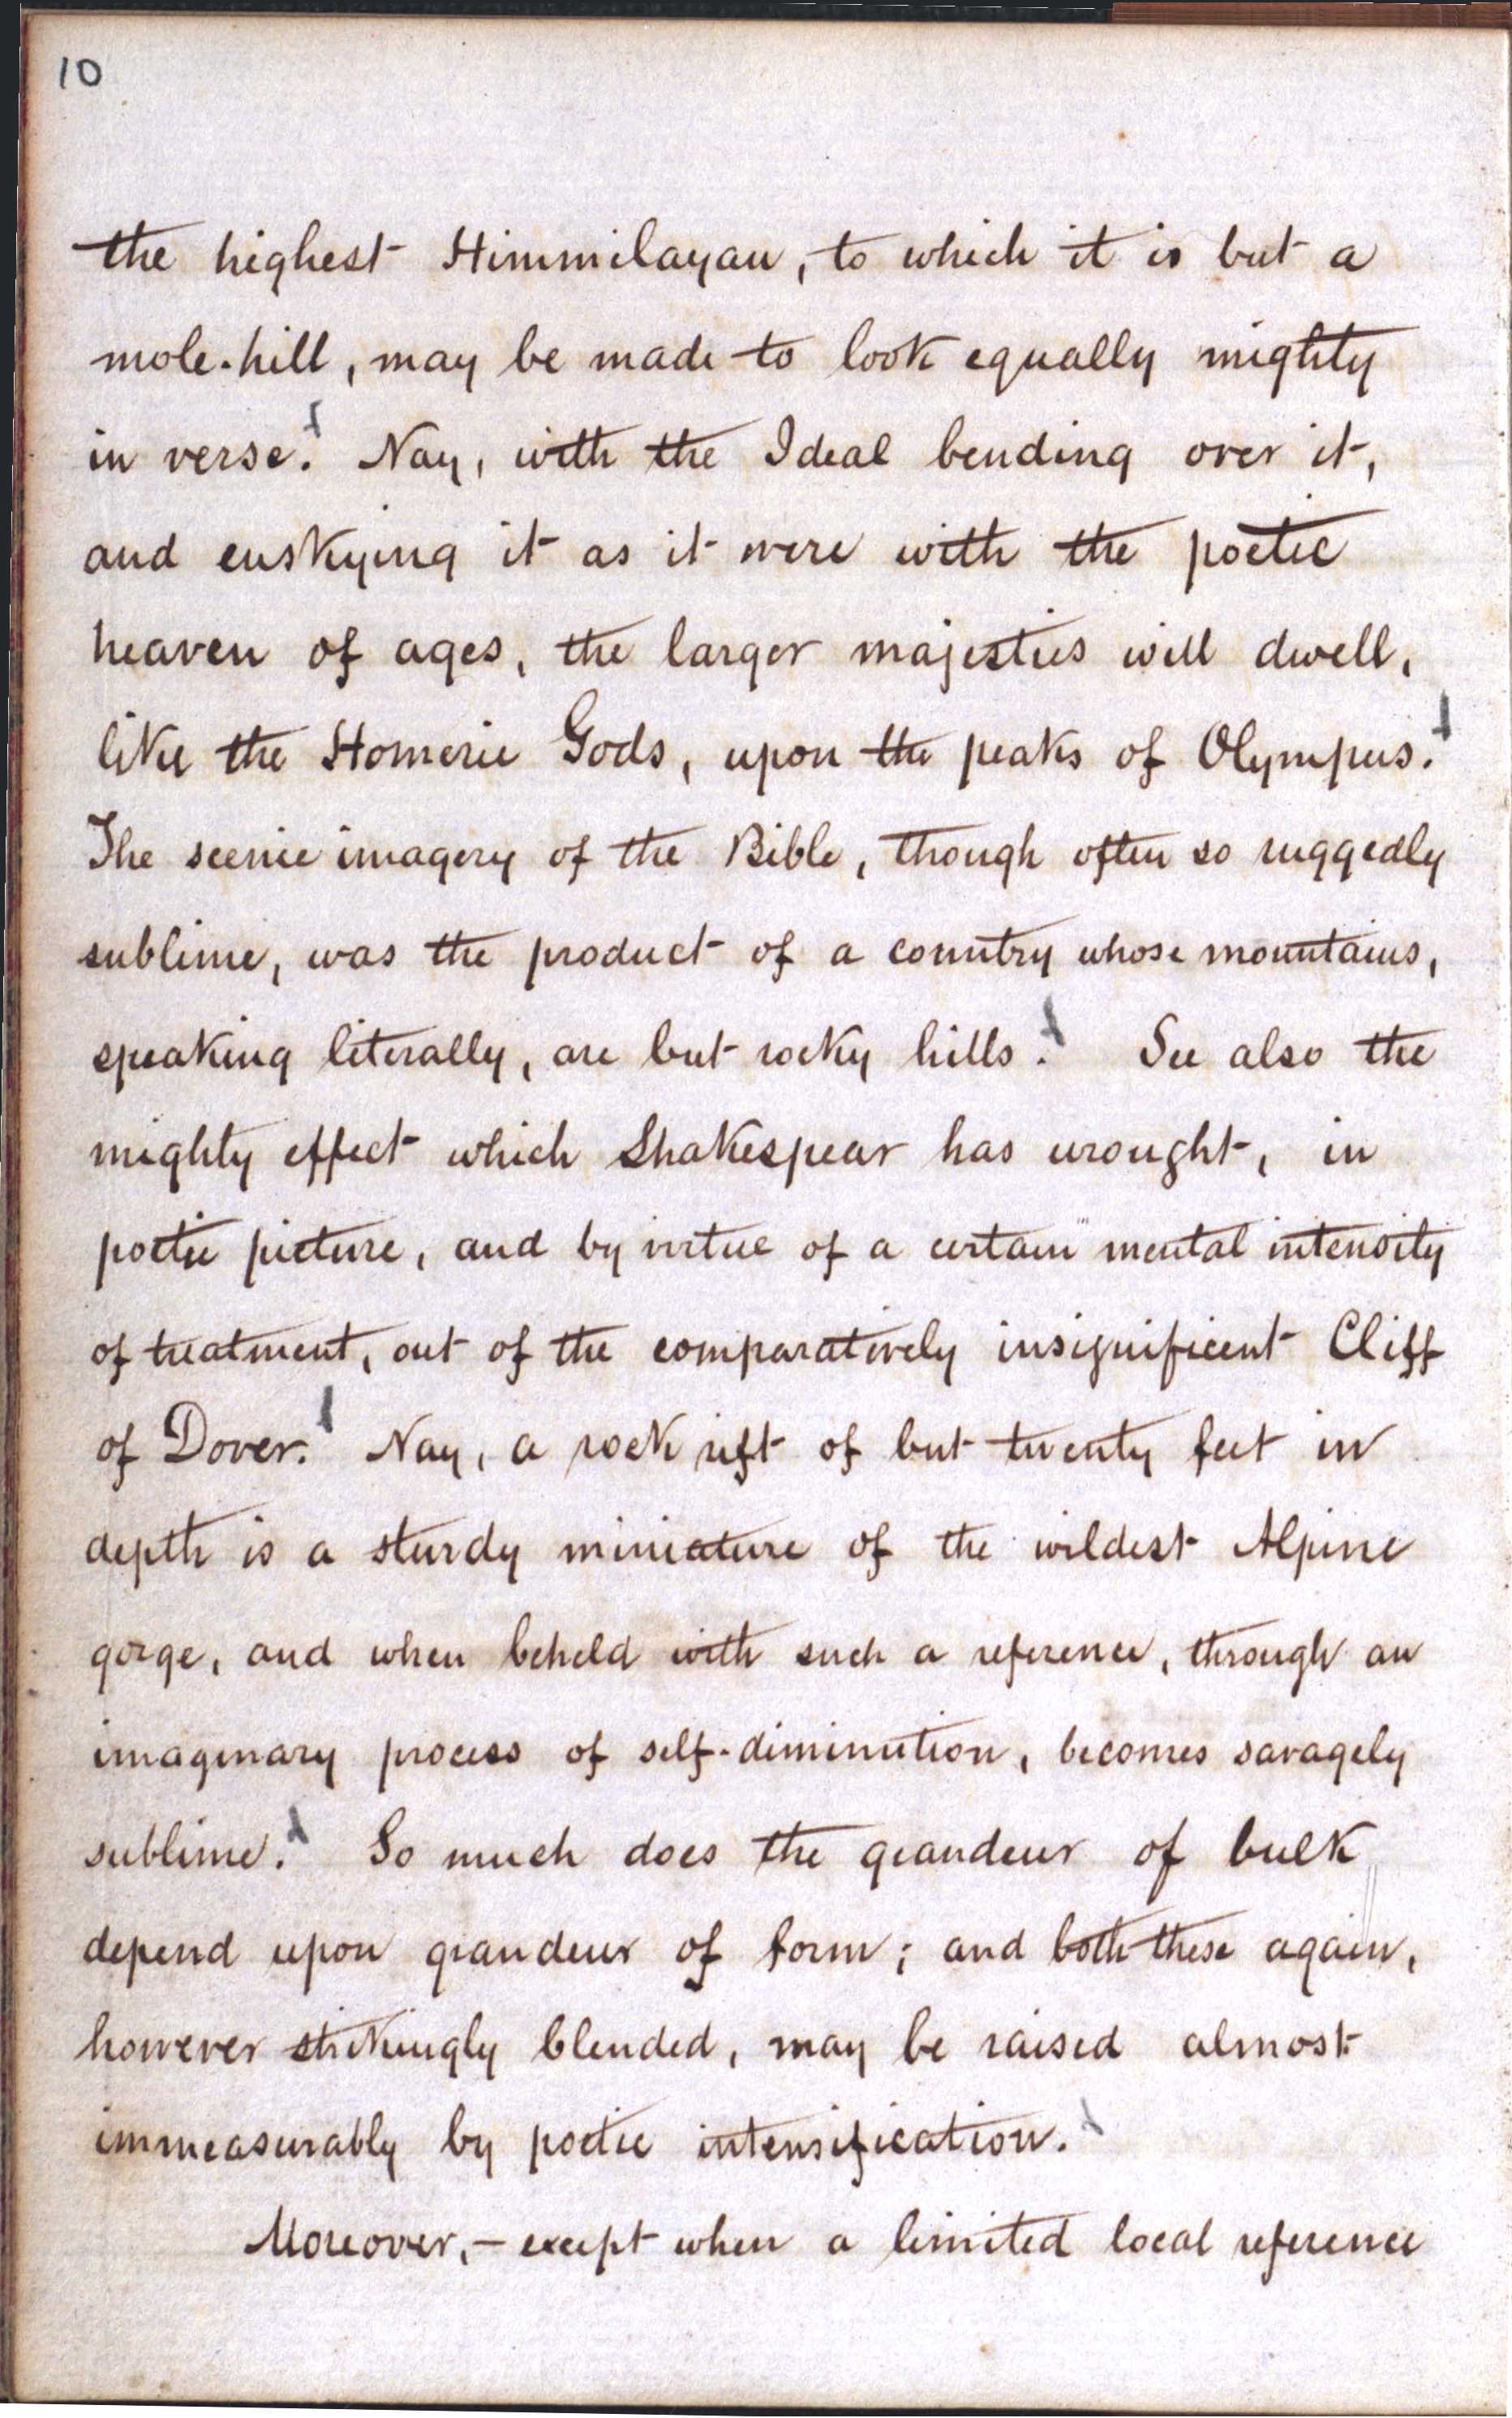 10
the highest Himmilayan, to which it is but a
mole-hill, may be made to look equally mighty
in verse. Nay, with the Ideal bending over it,
and enskying it as it were with the poetic
heaven of ages, the larger majesties will dwell,
like the Homeric Gods, upon the peaks of Olympus.
The scenic imagery of the Bible, though often so ruggedly
sublime, was the product of a country whose mountains,
speaking literally, are but rocky hills. See also the
mighty effect which Shakespear has wrought, in
poetic picture, and by virtue of a certain mental intensity
of treatment, out of the comparatively insignificent Cliff
of Dover. Nay, a rock rift of but twenty feet in
depth is a sturdy miniature of the wildest Alpine
gorge, and when beheld with such a reference, through an
imaginary process of self-diminution, becomes savagely
sublime. So much does the grandeur of bulk
depend upon grandeur of form; and both these again,
however strikingly blended, may be raised almost
immeasurably by poetic intensification.
Moreover, — except when a limited local reference